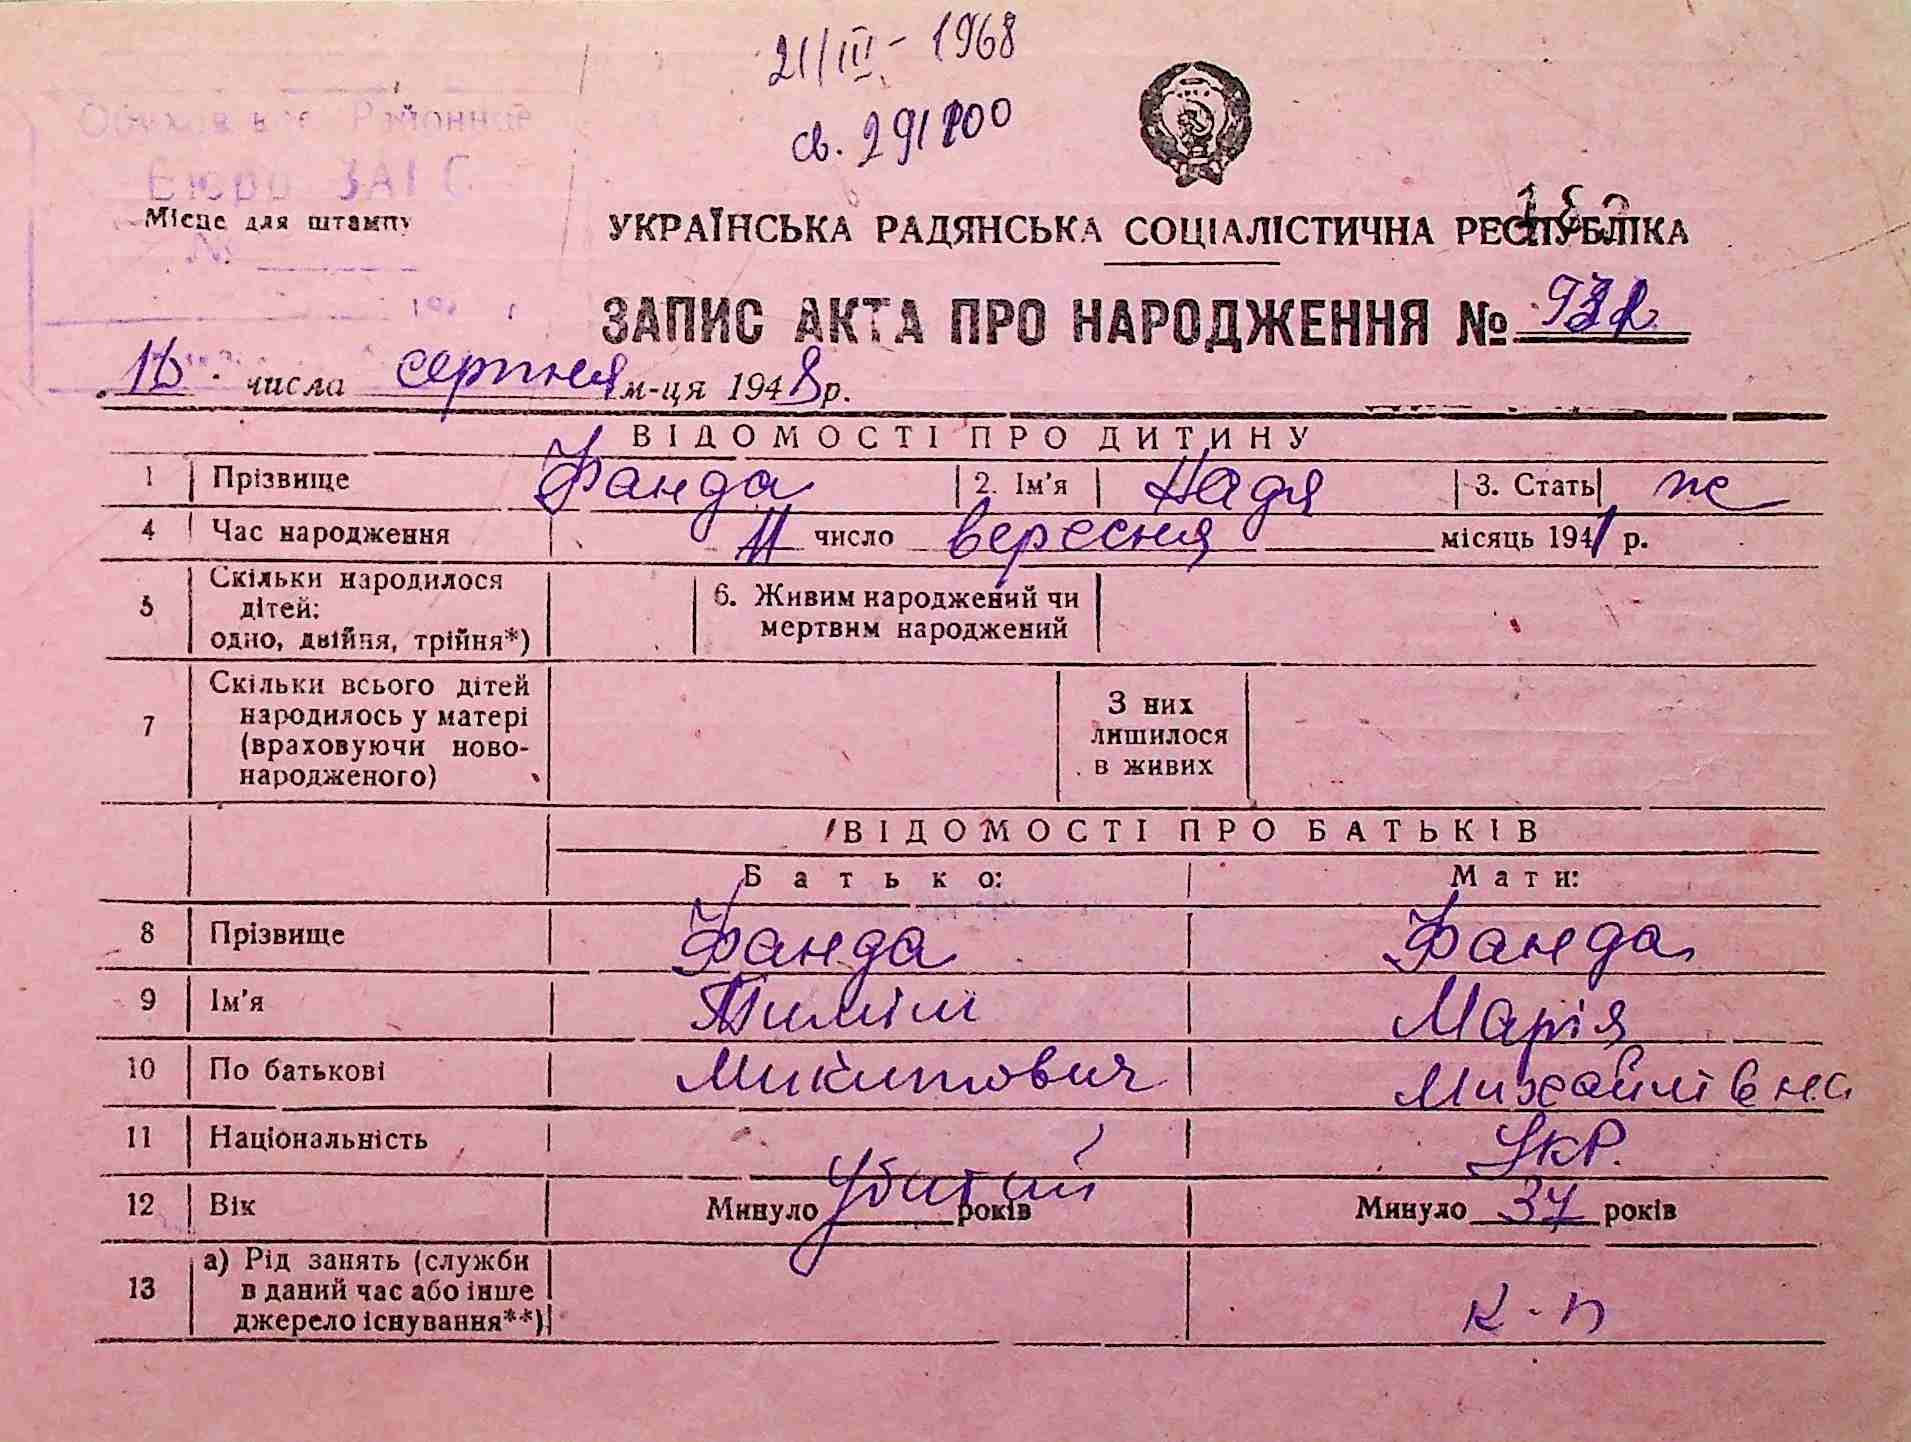 21/III - 1968
св. 291200
Районне
Бюро ЗАГС
Місце для штампу
№
УКРАЇНСЬКА РАДЯНСЬКА СОЦІАЛІСТИЧНА РЕСПУБЛІКА
ЗАПИС АКТА ПРО НАРОДЖЕННЯ №
16 числа серпня м-ця 1948 р.
ВІДОМОСТІ ПРО ДИТИНУ
1 Прізвище Фанда 2. Ім'я Надя 3. Стать ж
4 Час народження 11 число вересня місяць 1941 р.
5 Скільки народилося дітей: одно, двійня, трійня*) 6. Живим народжений чи мертвим народжений
7 Скільки всього дітей народилось у матері (враховуючи ново-народженого) З них лишилося в живих
ВІДОМОСТІ ПРО БАТЬКІВ
Батько: Мати:
8 Прізвище Фанда Фанда
9 Ім'я Пилип Марія
10 По батькові Микитович Михайлівна
11 Національність Укр.
12 Вік Минуло Убитий років Минуло 37 років
13 а) Рід занять (служби в даний час або інше джерело існування**) к-п